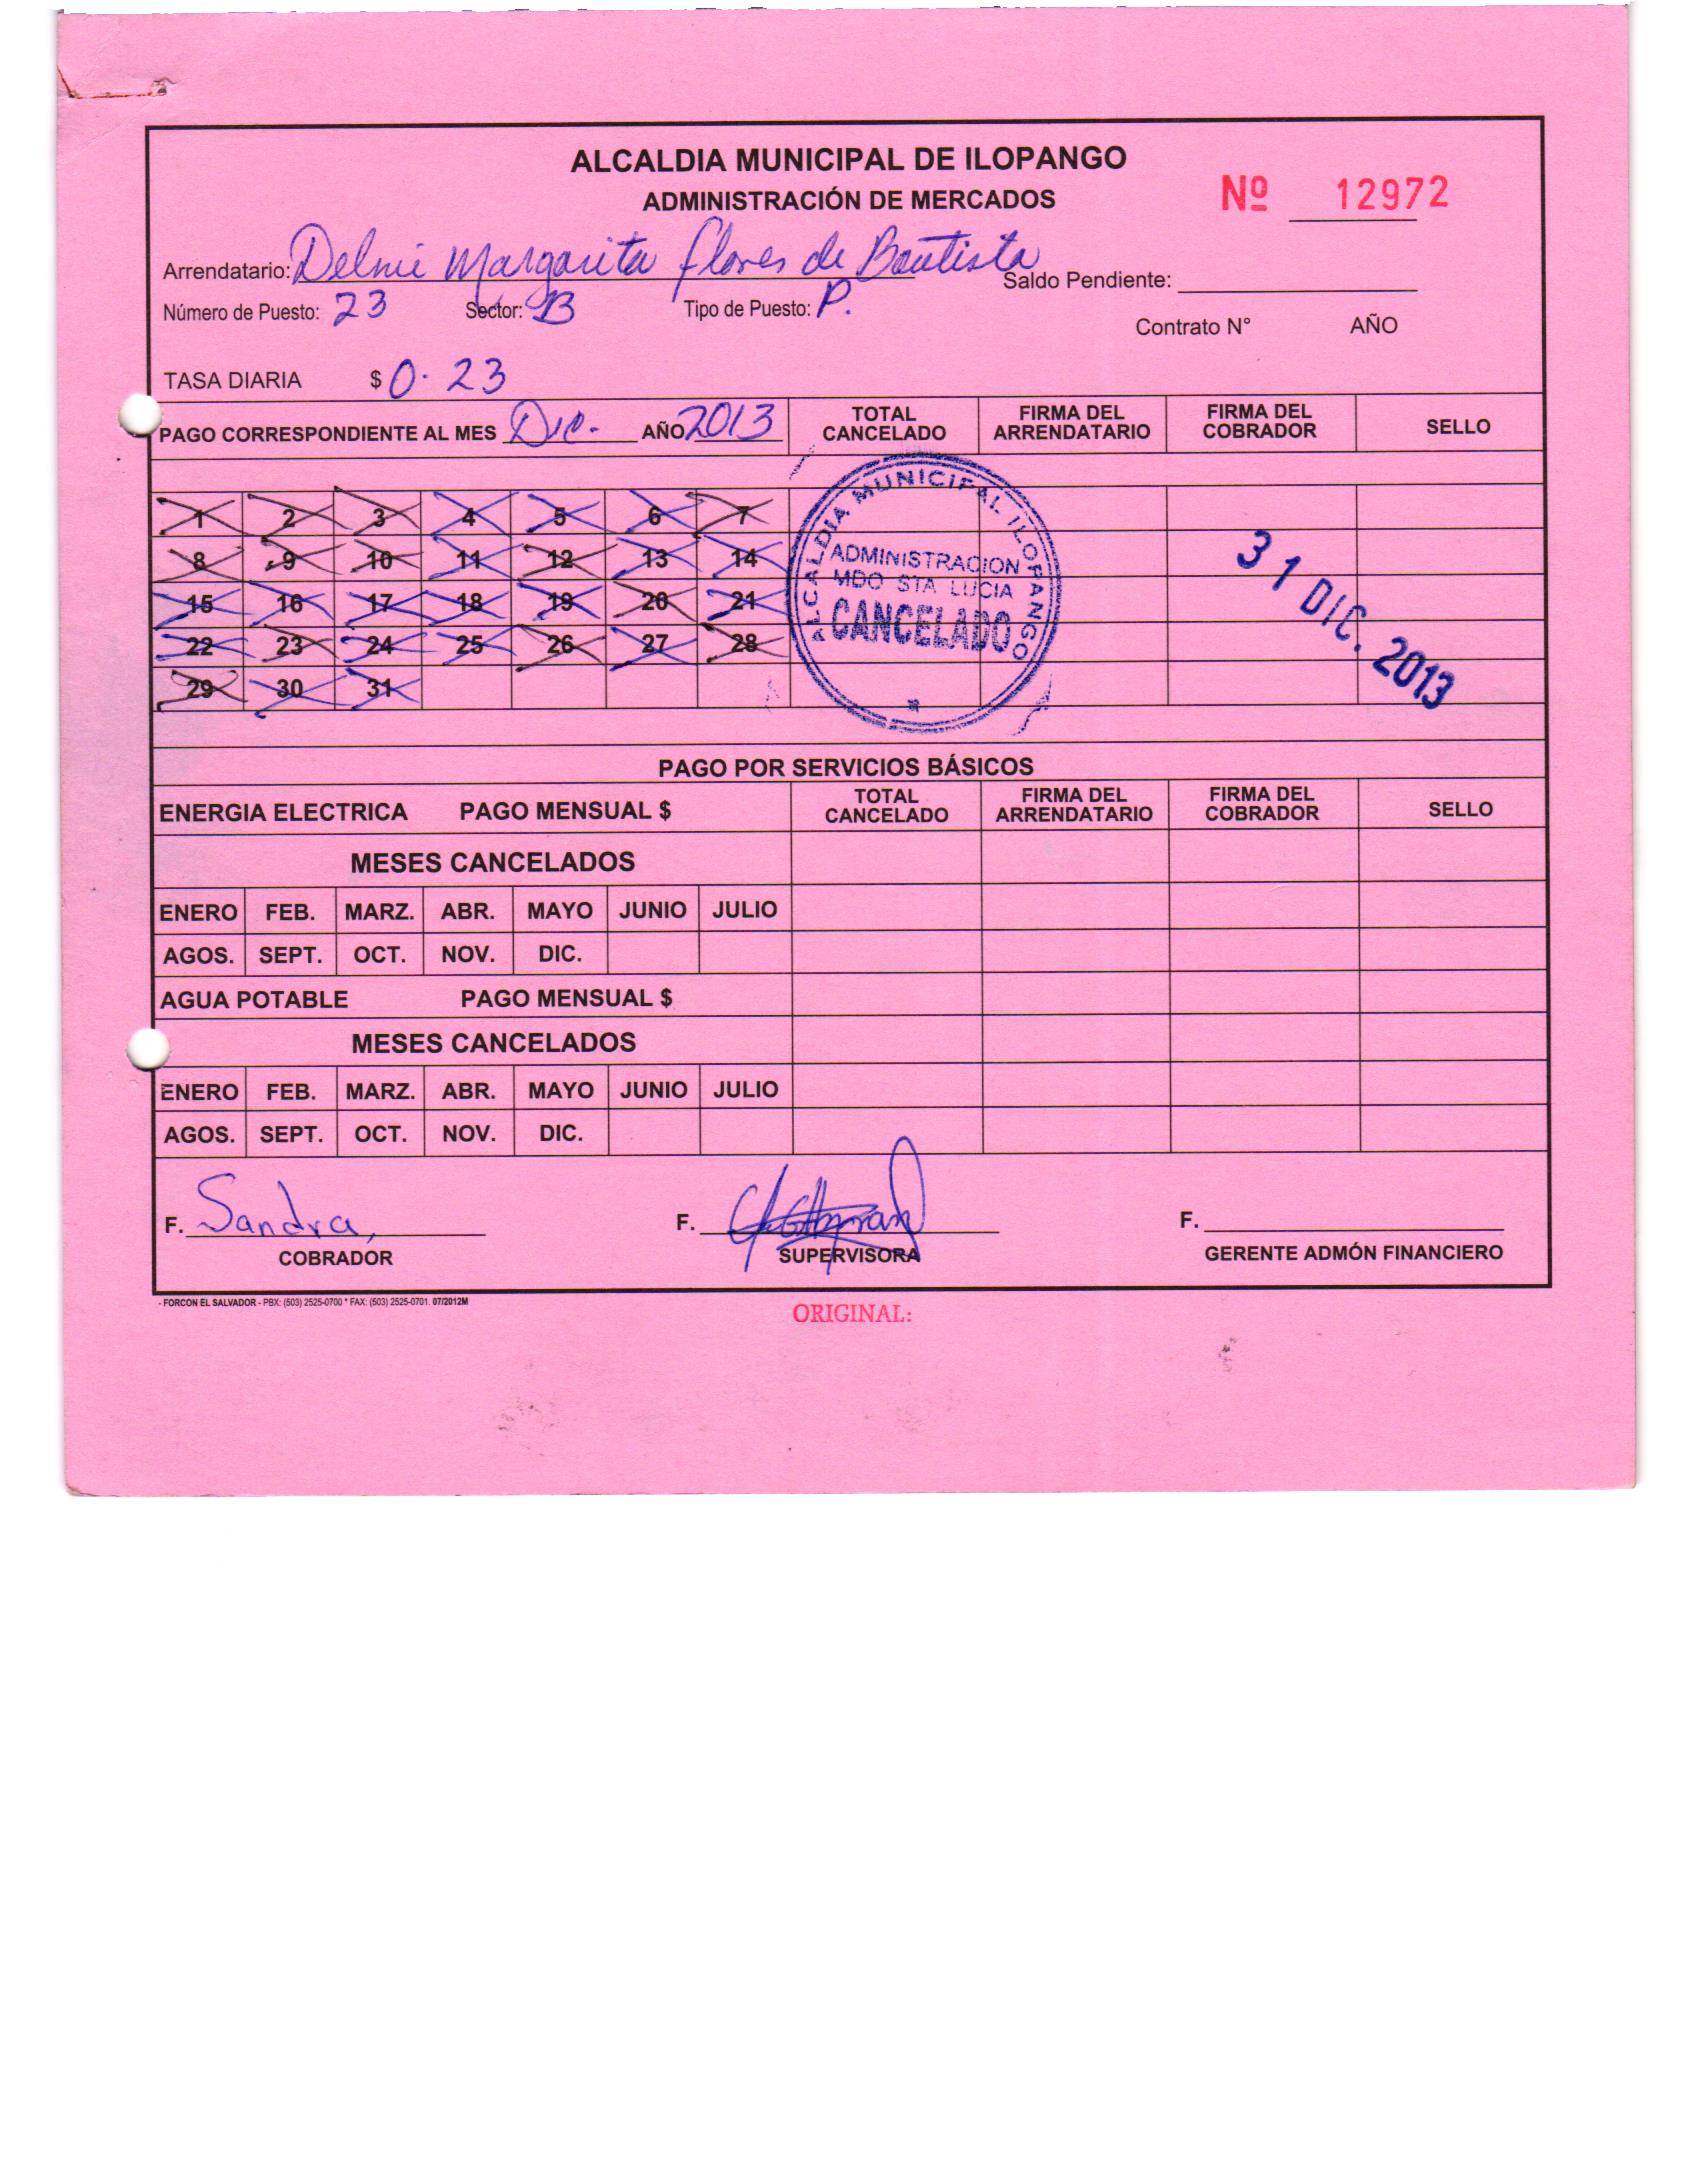 ALCALDIA MUNICIPAL DE ILOPANGO
ADMINISTRACIÓN DE MERCADOS
Nº 12972
Arrendatario: Delmi Margarita Flores de Bautista Saldo Pendiente:
Número de Puesto: 23 Sector: B Tipo de Puesto: P.
Contrato N° AÑO
TASA DIARIA $ 0.23
PAGO CORRESPONDIENTE AL MES Dic. AÑO 2013 TOTAL CANCELADO FIRMA DEL ARRENDATARIO FIRMA DEL COBRADOR SELLO
1 2 3 4 5 6 7
8 9 10 11 12 13 14
15 16 17 18 19 20 21
22 23 24 25 26 27 28
29 30 31
ALCALDIA MUNICIPAL ILOPANGO
ADMINISTRACION
MDO STA LUCIA
CANCELADO
31 DIC. 2013
PAGO POR SERVICIOS BÁSICOS
ENERGIA ELECTRICA PAGO MENSUAL $ TOTAL CANCELADO FIRMA DEL ARRENDATARIO FIRMA DEL COBRADOR SELLO
MESES CANCELADOS
ENERO FEB. MARZ. ABR. MAYO JUNIO JULIO
AGOS. SEPT. OCT. NOV. DIC.
AGUA POTABLE PAGO MENSUAL $
MESES CANCELADOS
ENERO FEB. MARZ. ABR. MAYO JUNIO JULIO
AGOS. SEPT. OCT. NOV. DIC.
F. Sandra, F. F.
COBRADOR SUPERVISORA GERENTE ADMÓN FINANCIERO
- FORCON EL SALVADOR - PBX: (503) 2525-0700 * FAX: (503) 2525-0701. 07/2012M
ORIGINAL: